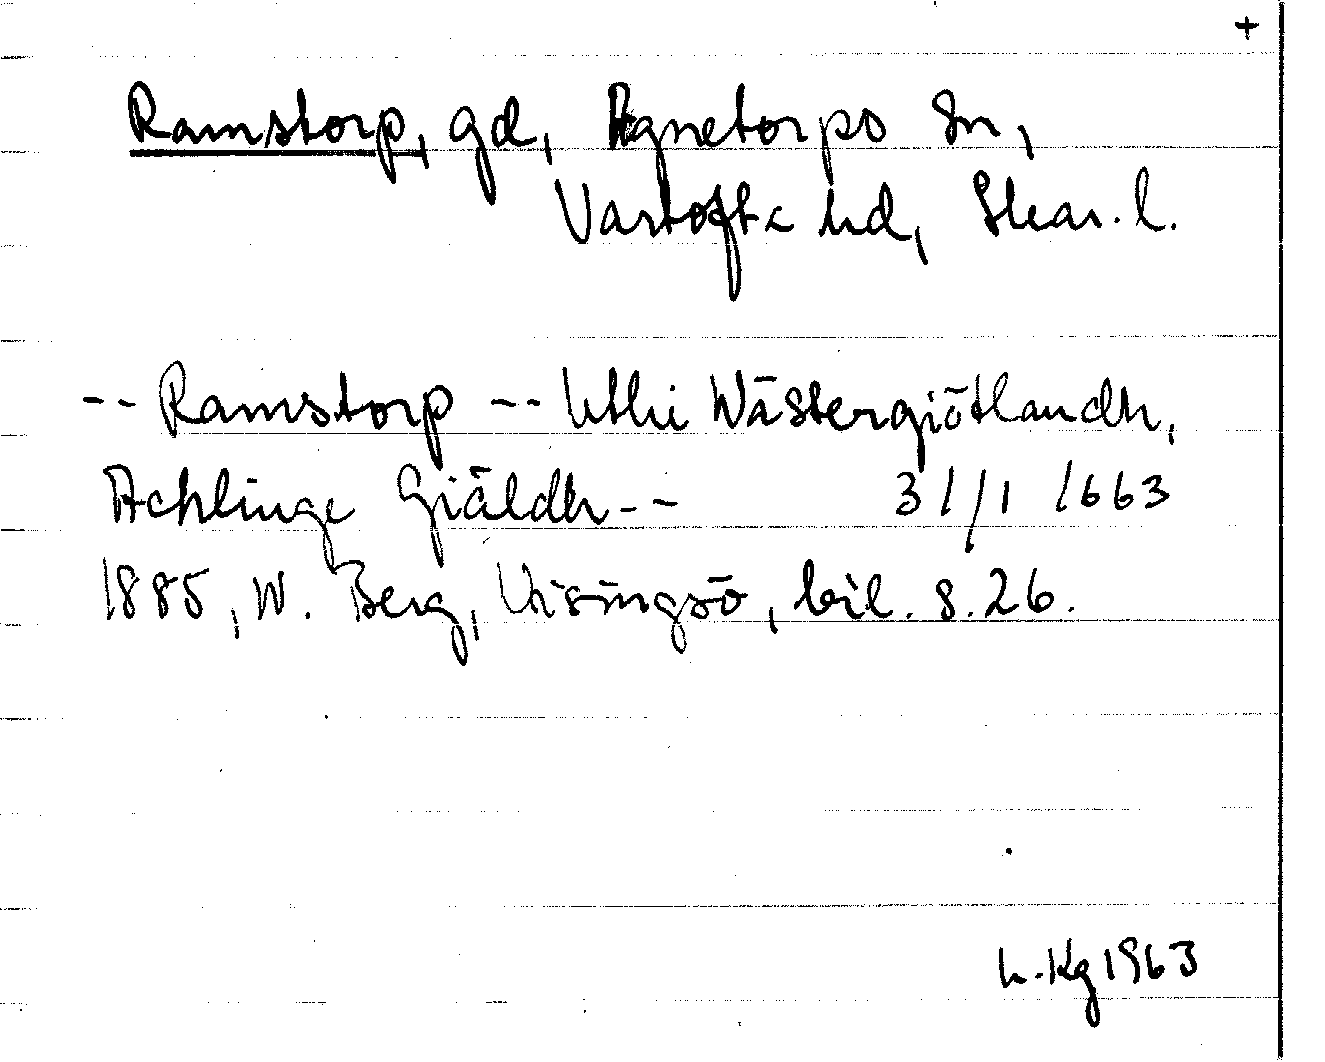 +
Ramstorp, gd, Agnetorps sn,
Vartofta hd, Skar. l.
-- Ramstorp -- Uthi Wästergiötlandh,
Achlinge Giäldh -- 31/1 1663
1885, W. Berg, Visingsö, bil. s. 26.
L.Kg 1963